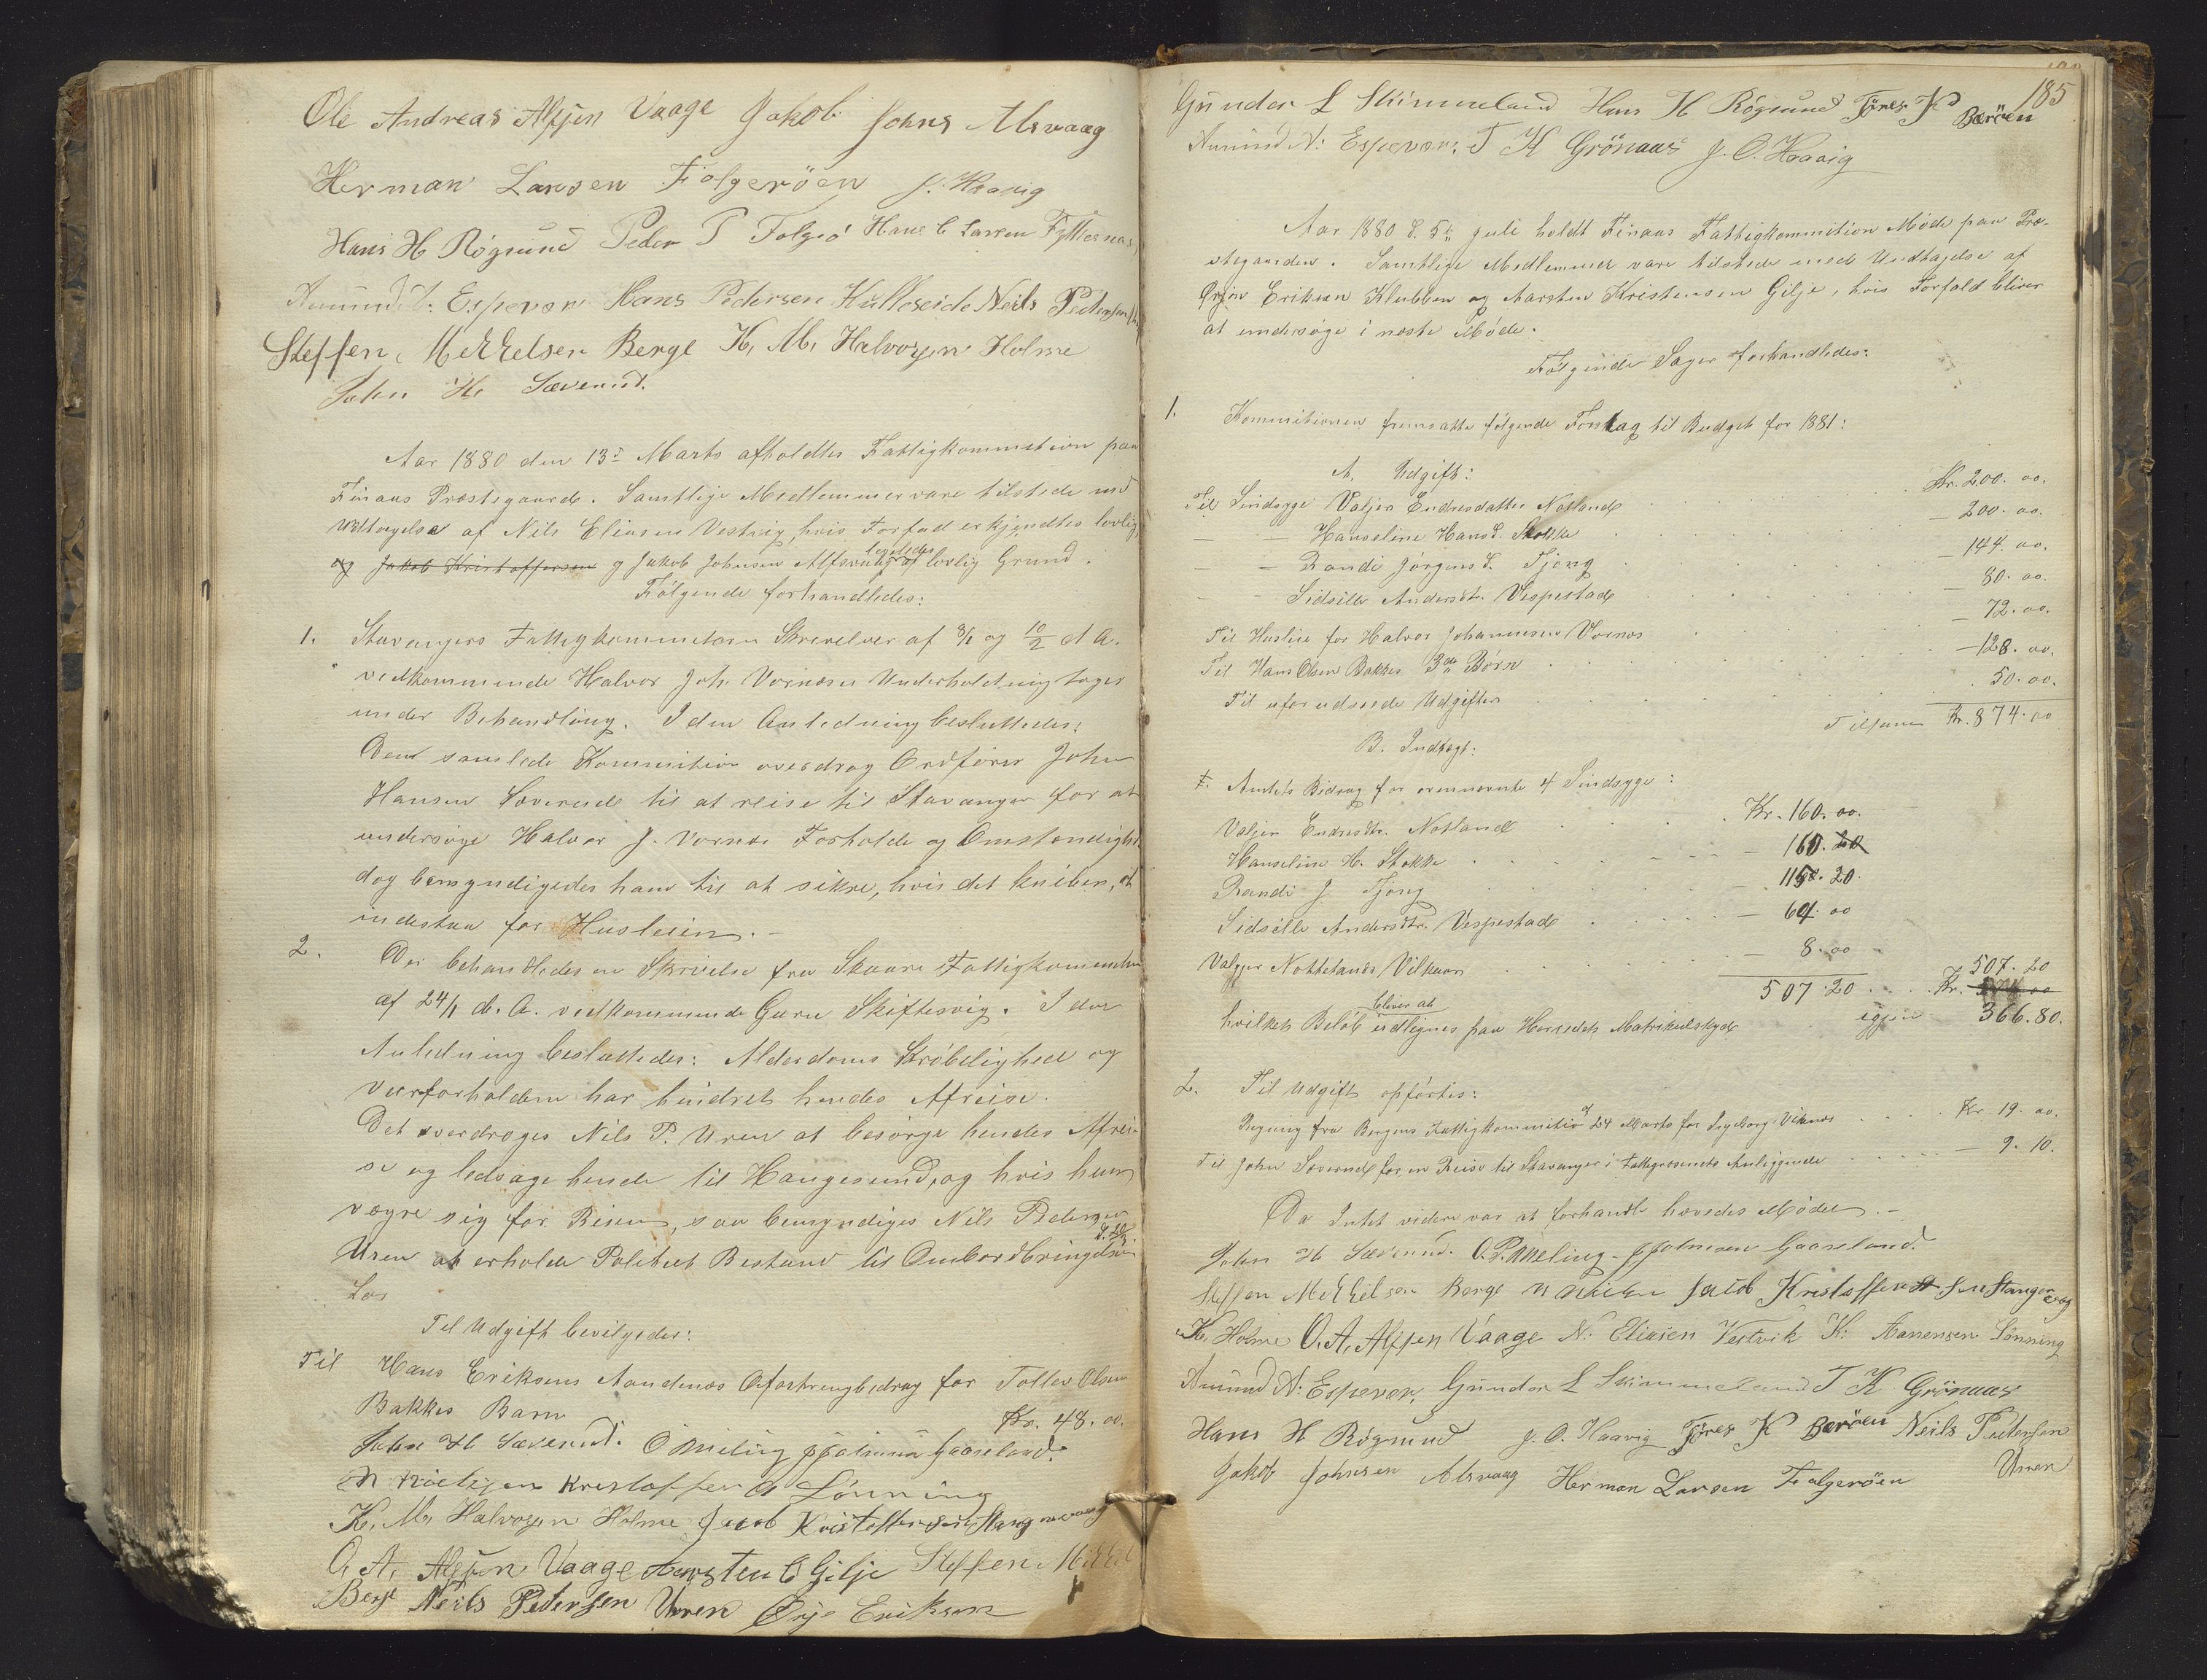 Ole Andreas Alfsen Vaage Jakob Johns Alsvaag
Herman Larsen Folgeröen J. Haavig
Hans H Rögsund Peder P Folgrö Hans C Larsen Fyllesnæs
Amund N: Espevær Hans Pedersen Kulleseide Neils Pedersen
Steffen Mekkelsen Berge K. M. Halvorsen Holme
John H. Sæverud.
Aar 1880 den 13de Marts afholdtes Fattigkommission paa
Finaas Præstegaard. Samtlige Medlemmer vare tilstede med
Undtagelse af Nils Eliasen Vestvig, hvis Forfald erkjendtes lovlig,
og Jakob Kristoffersen og Jakob Johnsen Alfsvaag ligeledes af lovlig Grund.
Følgende forhandledes:
1. Stavangers Fattigkommissions Skrivelser af 8/1 og 10/2 d. A.
vedkommende Halvor Joh. Vornæses Underholdning toges
under Behandling. I den Anledning besluttedes:
Den samlede Kommission overdrog Ordfører John
Hansen Sæverud til at reise til Stavanger for at
undersøge Halvor J. Vornæs Forholde og Omstændighe
dog bemyndigedes ham til at sikre, hvis det kniber, at
indestaa for Husleien. -
2. Der behandledes en Skrivelse fra Skaare Fattigkommission
af 24/1 d. A. vedkommende Guru Skiftesvig. I den
Anledning besluttedes: Alderdoms Skrøbelighed og
Veirforholdene har hindret hendes Afreise.
Det overdroges Nils P. Uren at besørge hendes Afrei-
se og ledsage hende til Haugesund, og hvis hun
vægre sig for Reisen, saa bemyndiges Nils Pedersen
Uren at erholde Politiets Bestand til Ombordbringelse
Til Udgift bevilgedes:
Til Hans Eriksens Aandenæs Opfostringsbidrag for Tollev Olsen
Bakkes Barn Kr. 48. 00.
John H Sæverud. O Meling J Johnsen Gaaseland.
N Nielsen Kristoffer A Lönning
K. M. Halvorsen Holme Jacob Kristoffersen Stangervaag
O. A. Alfsen Vaage Aarsten C Gilje Steffen Mekkel
Berge Neils Pedersen Urren Ørje Eriksen
185
Gunder L Skimmeland Hans H Rögsund Töres K Beröen
Amund N: Espevær. T K Grönaas J. O. Haavig
Aar 1880 d. 5te Juli holdt Finaas Fattigkommission Møde paa Præ-
stegaarden. Samtlige Medlemmer vare tilstede med Undtagelse af
Ørjen Eriksen Klubben og Aarsten Kristensen Gilje, hvis Forfald bliver
at undersøge i næste Møde.
Følgende Sager forhandledes:
1. Kommissionen fremsatte følgende Forslag til Budget for 1881:
A. Udgift:
Til Sindsyge Valjer Endresdatter Notland Kr. 200. 00.
— — Hanseline Hans D. Stokke — 200. 00.
— — Randi Jørgens D. Tjong — 144. 00.
— — Sidselle Andersdtr. Vespestad — 80. 00.
Til Husleie for Halvor Johannesen Vornæs — 72. 00.
Til Hans Olsen Bakkes 3de Børn — 128. 00.
Til uforudseede Udgifter 50. 00.
Tilsammen Kr. 874. 00
B. Indtægt:
Amtets Bidrag for ovennævnte 4 Sindsyge:
Valjer Endresdtr. Notland Kr. 160. 00.
Hanseline H. Stokke — 160.
Randi J Tjong — 115. 20.
Sidselle Andersdtr. Vespestad — 64. 00
Valgjer Nottelands Vilkaar — 8. 00
507. 20 Kr. 507. 20
hvilket Beløb bliver at udlignes paa Herredets Matrikulskyld igjen 366. 80.
2. Til Udgift opførtes:
Regning fra Bergens Fattigkommission af 24 Marts for Ingeborg Viknæs Kr. 19. 00.
Til John Sæverud for en Reise til Stavanger i Fattigvæsenets Anliggende — 9. 10.
Da Intet videre var at forhandle hævedes Mødet. -
John H Sæverud. O. P. Meling - J Johnsen Gaaseland.
Steffen Mekkelsen Berge N Nielsen Jacob Kristoffersen Stangervaag
K. Holme O. A. Alfsen Vaage N: Eliasen Vestvik K: Aanensen Lönning
Amund N: Espevær. Gunder L Skimmeland T K Grönaas
Hans H Rögsund J. O. Haavig Töres K Beröen Neils Pedersen
Jakob Johnsen Alsvaag Herman Larsen Folgeröen Urren